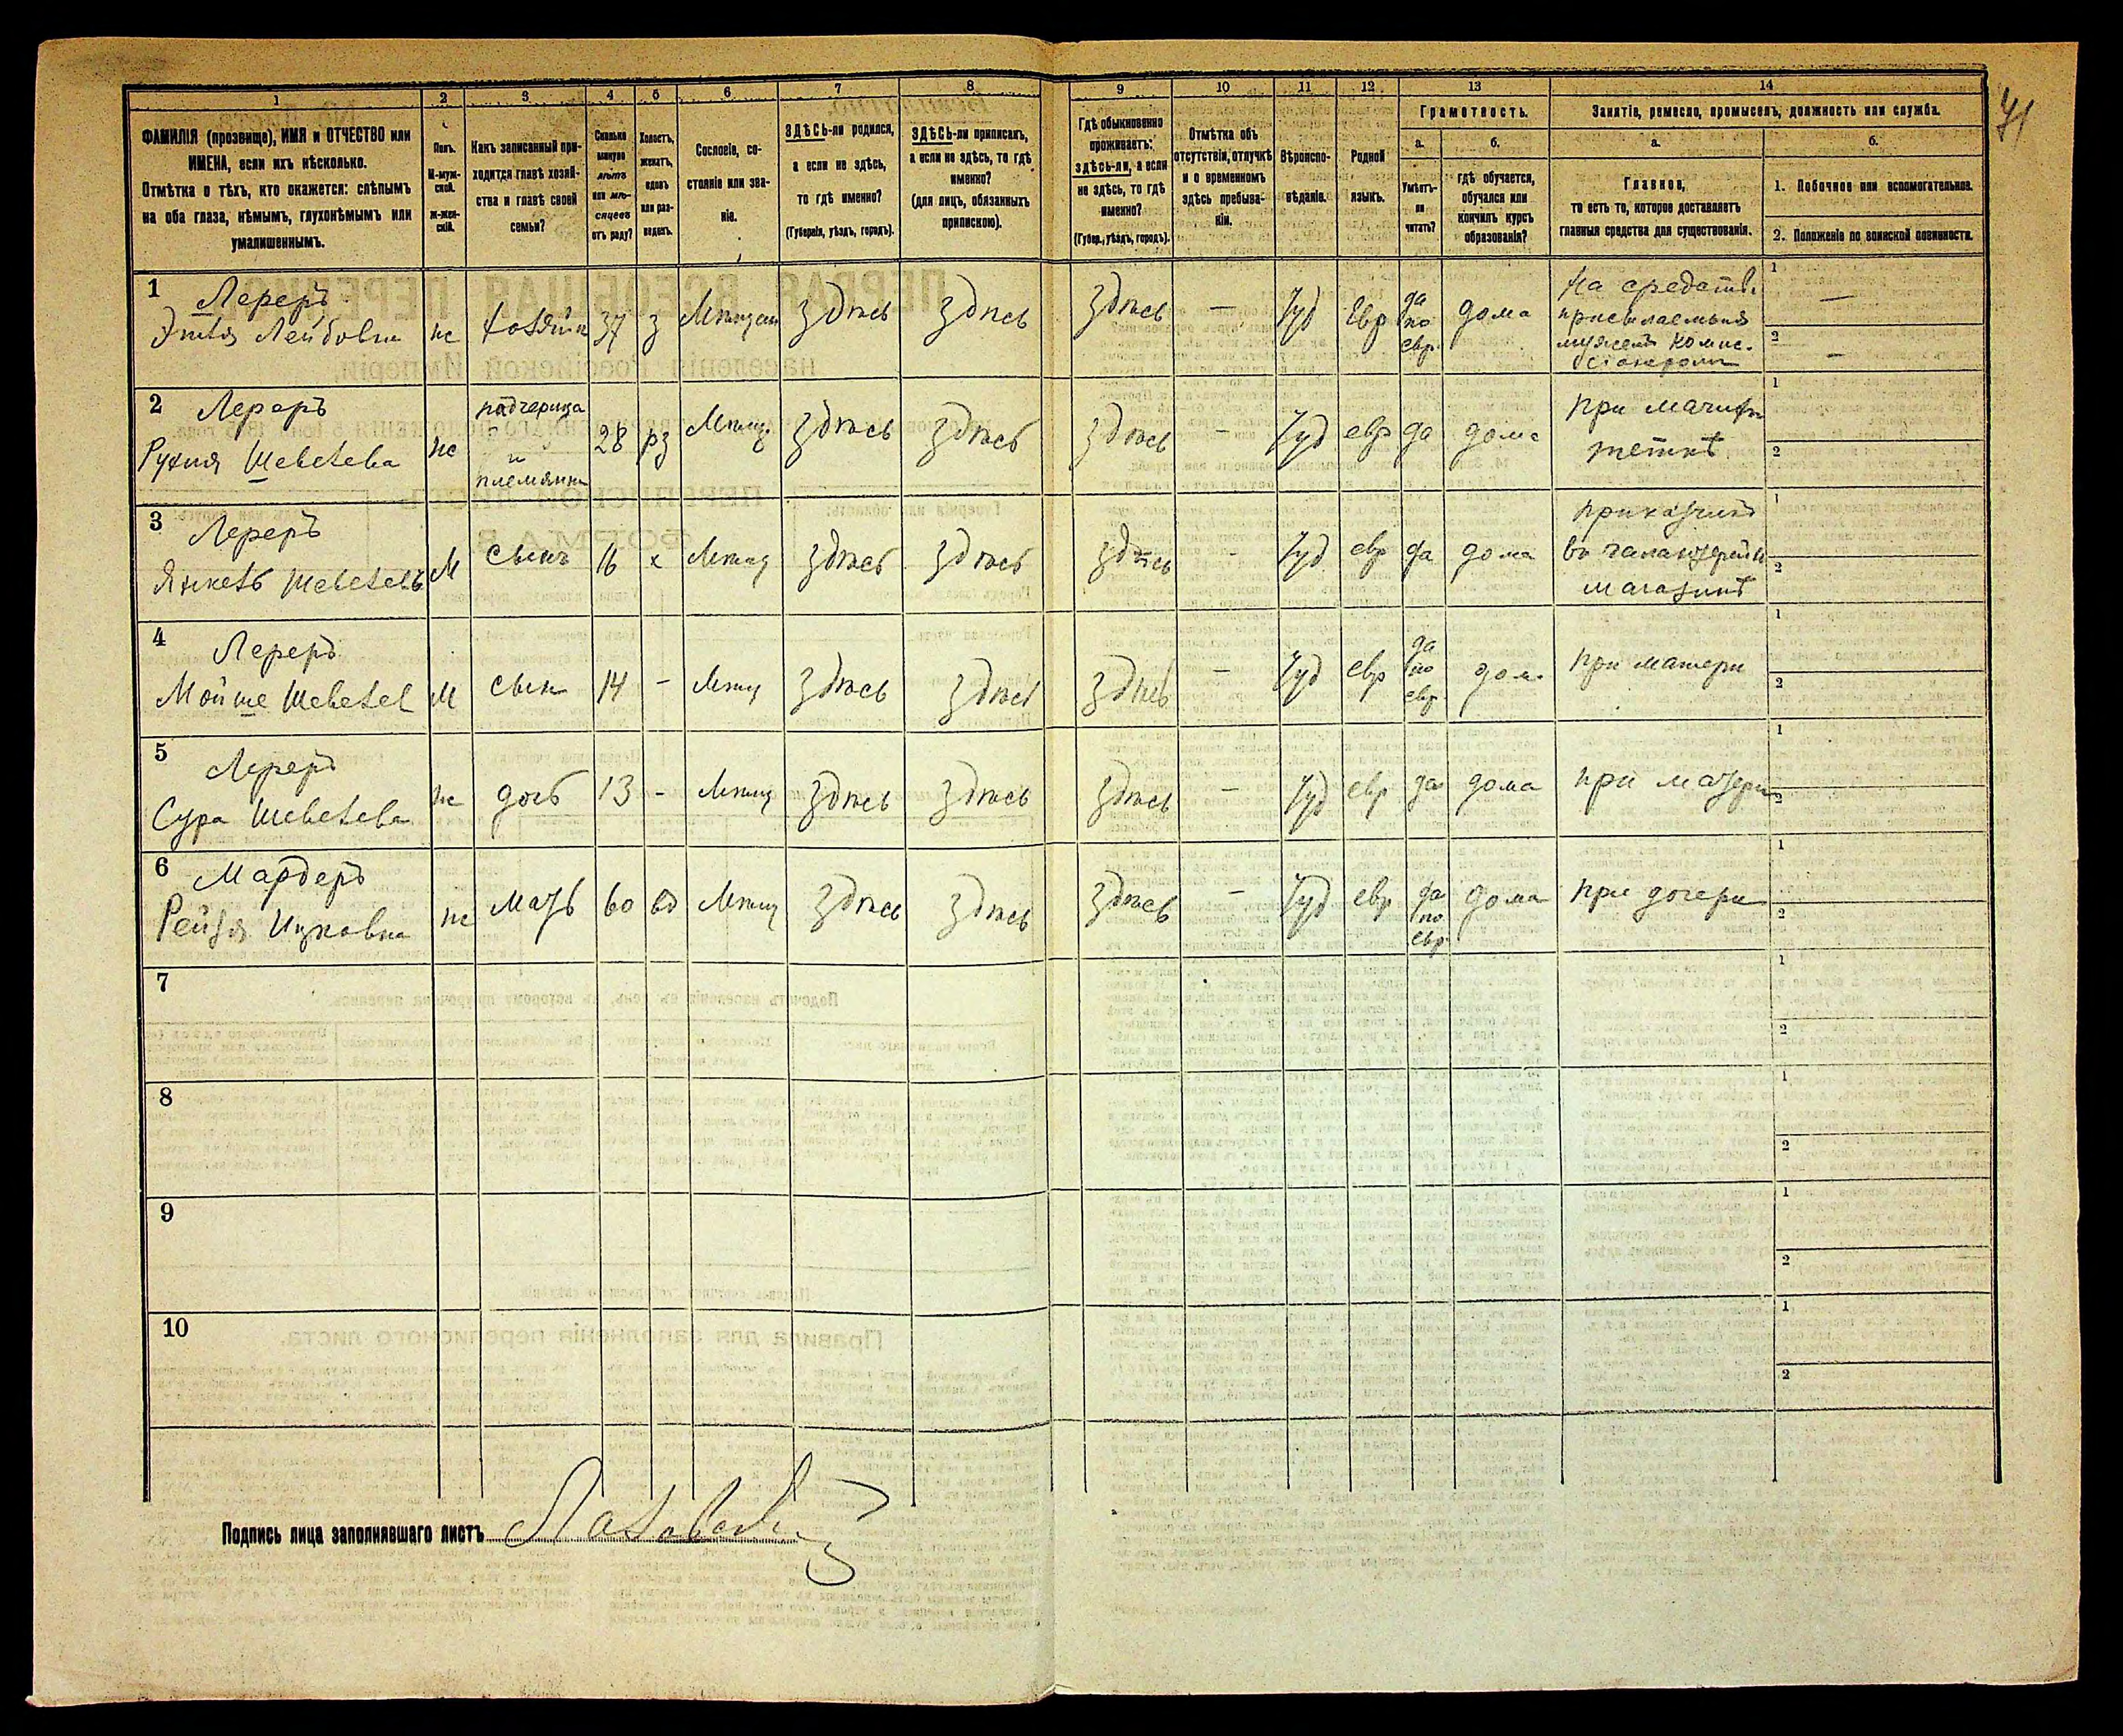 71
1 2 3 4 5 6 7 8 9 10 11 12 13 14
ФАМИЛІЯ (прозвище), ИМЯ и ОТЧЕСТВО или
ИМЕНА, если ихъ нѣсколько.
Отмѣтка о тѣхъ, кто окажется: слѣпымъ
на оба глаза, нѣмымъ, глухонѣмымъ или
умалишеннымъ.
Полъ.
М-муж-
ской.
ж-жен-
скій.
Какъ записанный при-
ходится главѣ хозяй-
ства и главѣ своей
семьи?
Сколько
минуло
лѣтъ
или мѣ-
сяцевъ
отъ роду?
Холостъ,
женатъ,
вдовъ
или раз-
веденъ.
Сословіе, со-
стояніе или зва-
ніе.
ЗДѢСЬ-ли родился,
а если не здѣсь,
то гдѣ именно?
(Губернія, уѣздъ, городъ).
ЗДѢСЬ-ли приписанъ,
а если не здѣсь, то гдѣ
именно?
(для лицъ, обязанныхъ
припискою).
Гдѣ обыкновенно
проживаетъ:
здѣсь-ли, а если
не здѣсь, то гдѣ
именно?
(Губер., уѣздъ, городъ).
Отмѣтка объ
отсутствіи, отлучкѣ
и о временномъ
здѣсь пребыва-
ніи.
Вѣроиспо-
вѣданіе.
Родной
языкъ.
Грамотность.
а.
Умѣетъ-
ли
читать?
б.
гдѣ обучается,
обучался или
кончилъ курсъ
образованія?
Занятіе, ремесло, промыселъ, должность или служба.
а.
Главное,
то есть то, которое доставляетъ
главныя средства для существованія.
б.
1. Побочное или вспомогательное.
2. Положеніе по воинской повинности.
1
Лереръ
Этля Лейбовна
ж
хозяйк
37
з
Мѣщан
здѣсь
здѣсь
здѣсь
—
Іуд
Евр
да
по
евр.
дома
На средств.
присылаемыя
мужемъ комис.
сіонеромъ
1 —
2 —
2
Лереръ
Рухля Шевелева
ж
падчерица
и
племянн
28
рз
Мѣщ.
здѣсь
здѣсь
здѣсь
—
Іуд
евр
да
дома
при
теткѣ
1
2
3
Лереръ
Янкель Шевелевъ
М
сынъ
16
х
Мѣщ
здѣсь
здѣсь
здѣсь
-
Іуд
евр
да
дома
приказчикъ
въ галантерейн
магазинѣ
1
2
4
Лереръ
Мойше Шевелев
М
сын
14
-
Мѣщ
здѣсь
здѣсь
здѣсь
—
Іуд
евр
да
по
евр.
дом.
при матери
1
2
5
Лереръ
Сура Шевелева
ж
дочь
13
-
Мѣщ
здѣсь
здѣсь
здѣсь
—
Іуд
евр
да
дома
при матери
1
2
6
Мардеръ
Рейзя Ицковна
ж
мать
60
вд
Мѣщ
здѣсь
здѣсь
здѣсь
—
Іуд
евр
да
по
евр.
дома
при дочери
1
2
7
1
2
8
1
2
9
1
2
10
1
2
Подпись лица заполнявшаго листъ